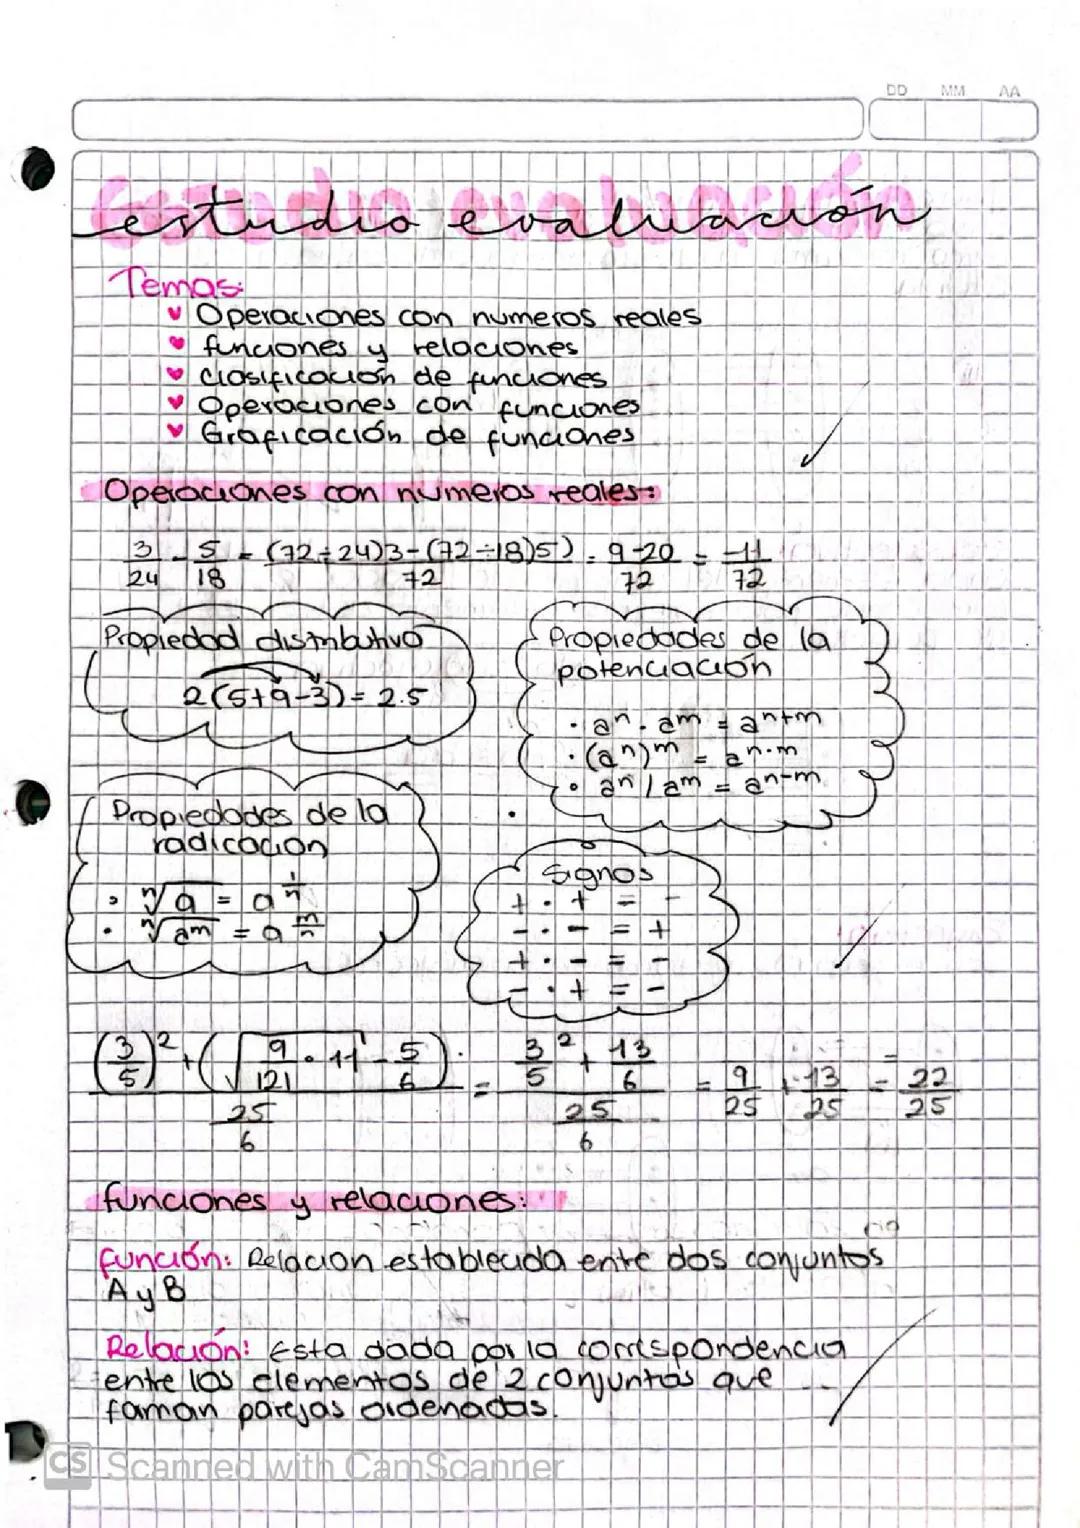 DD MM AA
estudio evaluación
Temas:
Operaciones con numeros reales
funciones y relaciones
clasificación de funciones
Operaciones con funciones
Graficación de funciones
Operaciones con numeros reales:
3/24 - 5/18 = (72÷24)3-(72÷18)5)/72 = 9-20/72 = -11/72
Propiedad distributivo
2(5+9-3)= 2.5
Propiedades de la
potenciación
· aⁿ · aᵐ = aⁿ⁺ᵐ
· (aⁿ)ᵐ = aⁿ·ᵐ
· aⁿ / aᵐ = aⁿ⁻ᵐ
Propiedades de la
radicacion
· ⁿ√a = a^(1/n)
· ⁿ√aᵐ = a^(m/n)
Signos
+ · + = -
- · - = +
+ · - = -
- · + = -
(3/5)² + (√(9/121 · 11) - 5/6) / 25/6 = 3²/5 + 13/6 / 25/6 = 9/25 + 13/25 = 22/25
funciones y relaciones:
función: Relacion establecida entre dos conjuntos
A y B
Relación: Esta dada por la correspondencia
entre los elementos de 2 conjuntos que
forman parejas ordenadas.
CS Scanned with CamScanner